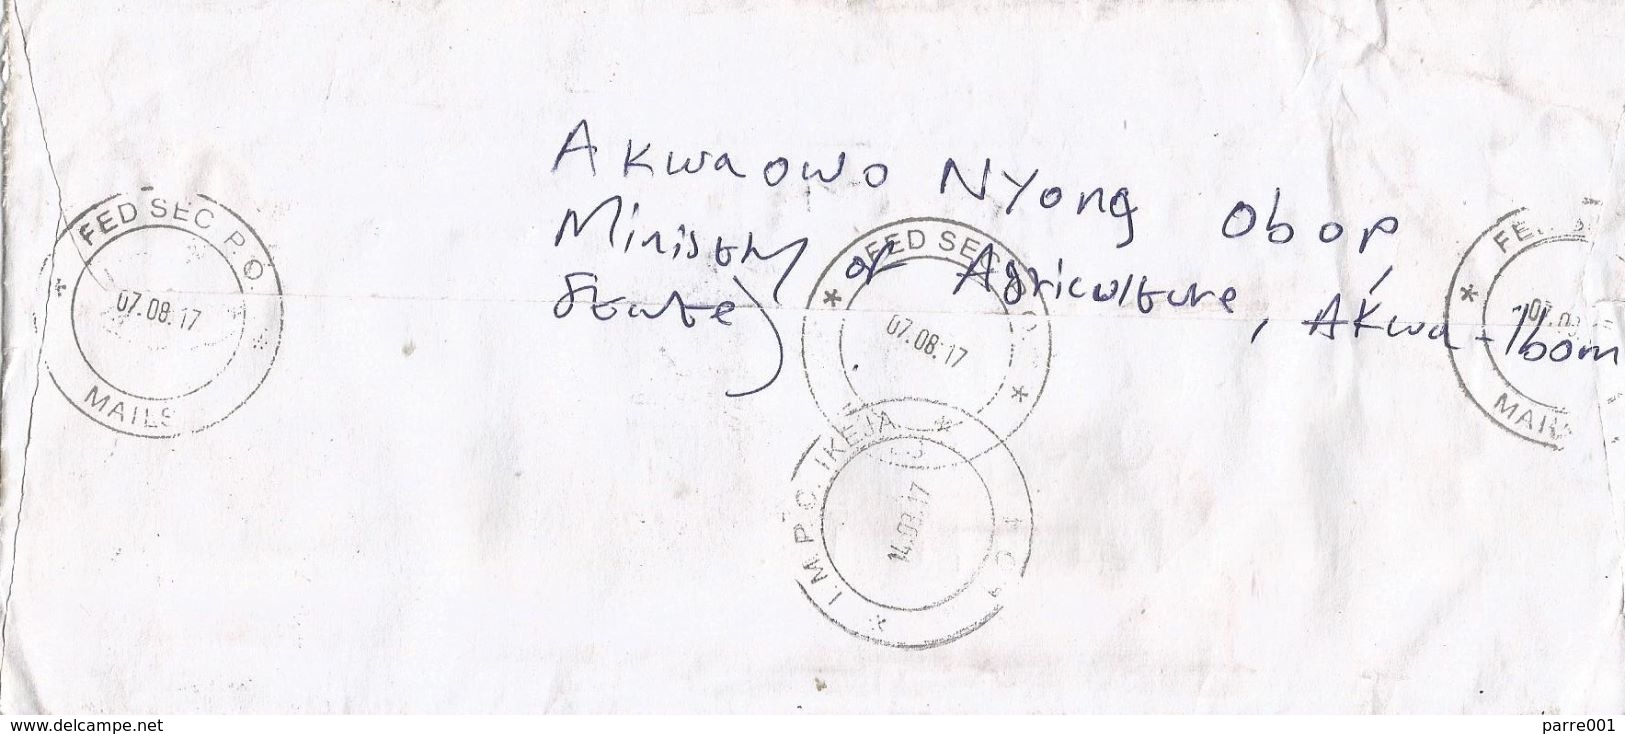 Akwaowo Nyong Obop,
Ministry of Agriculture, Akwa-Ibom
State
FED SEC P.O.
07.08.17
MAILS
FED SEC
07.08.17
I.M.P.C. IKEJA
14.08.17
FE
07.0
MAILS
www.delcampe.net
parre001